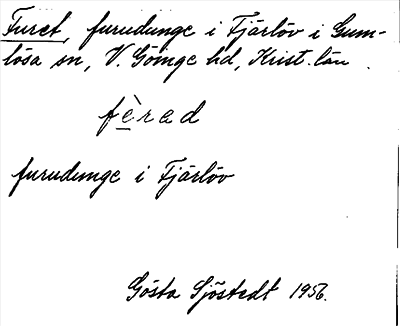 Furet, furudunge i Fjärlöv i Gum-
lösa sn, V. Göinge hd, Krist. län.
fè̱rad
furudunge i Fjärlöv
Gösta Sjöstedt 1956.